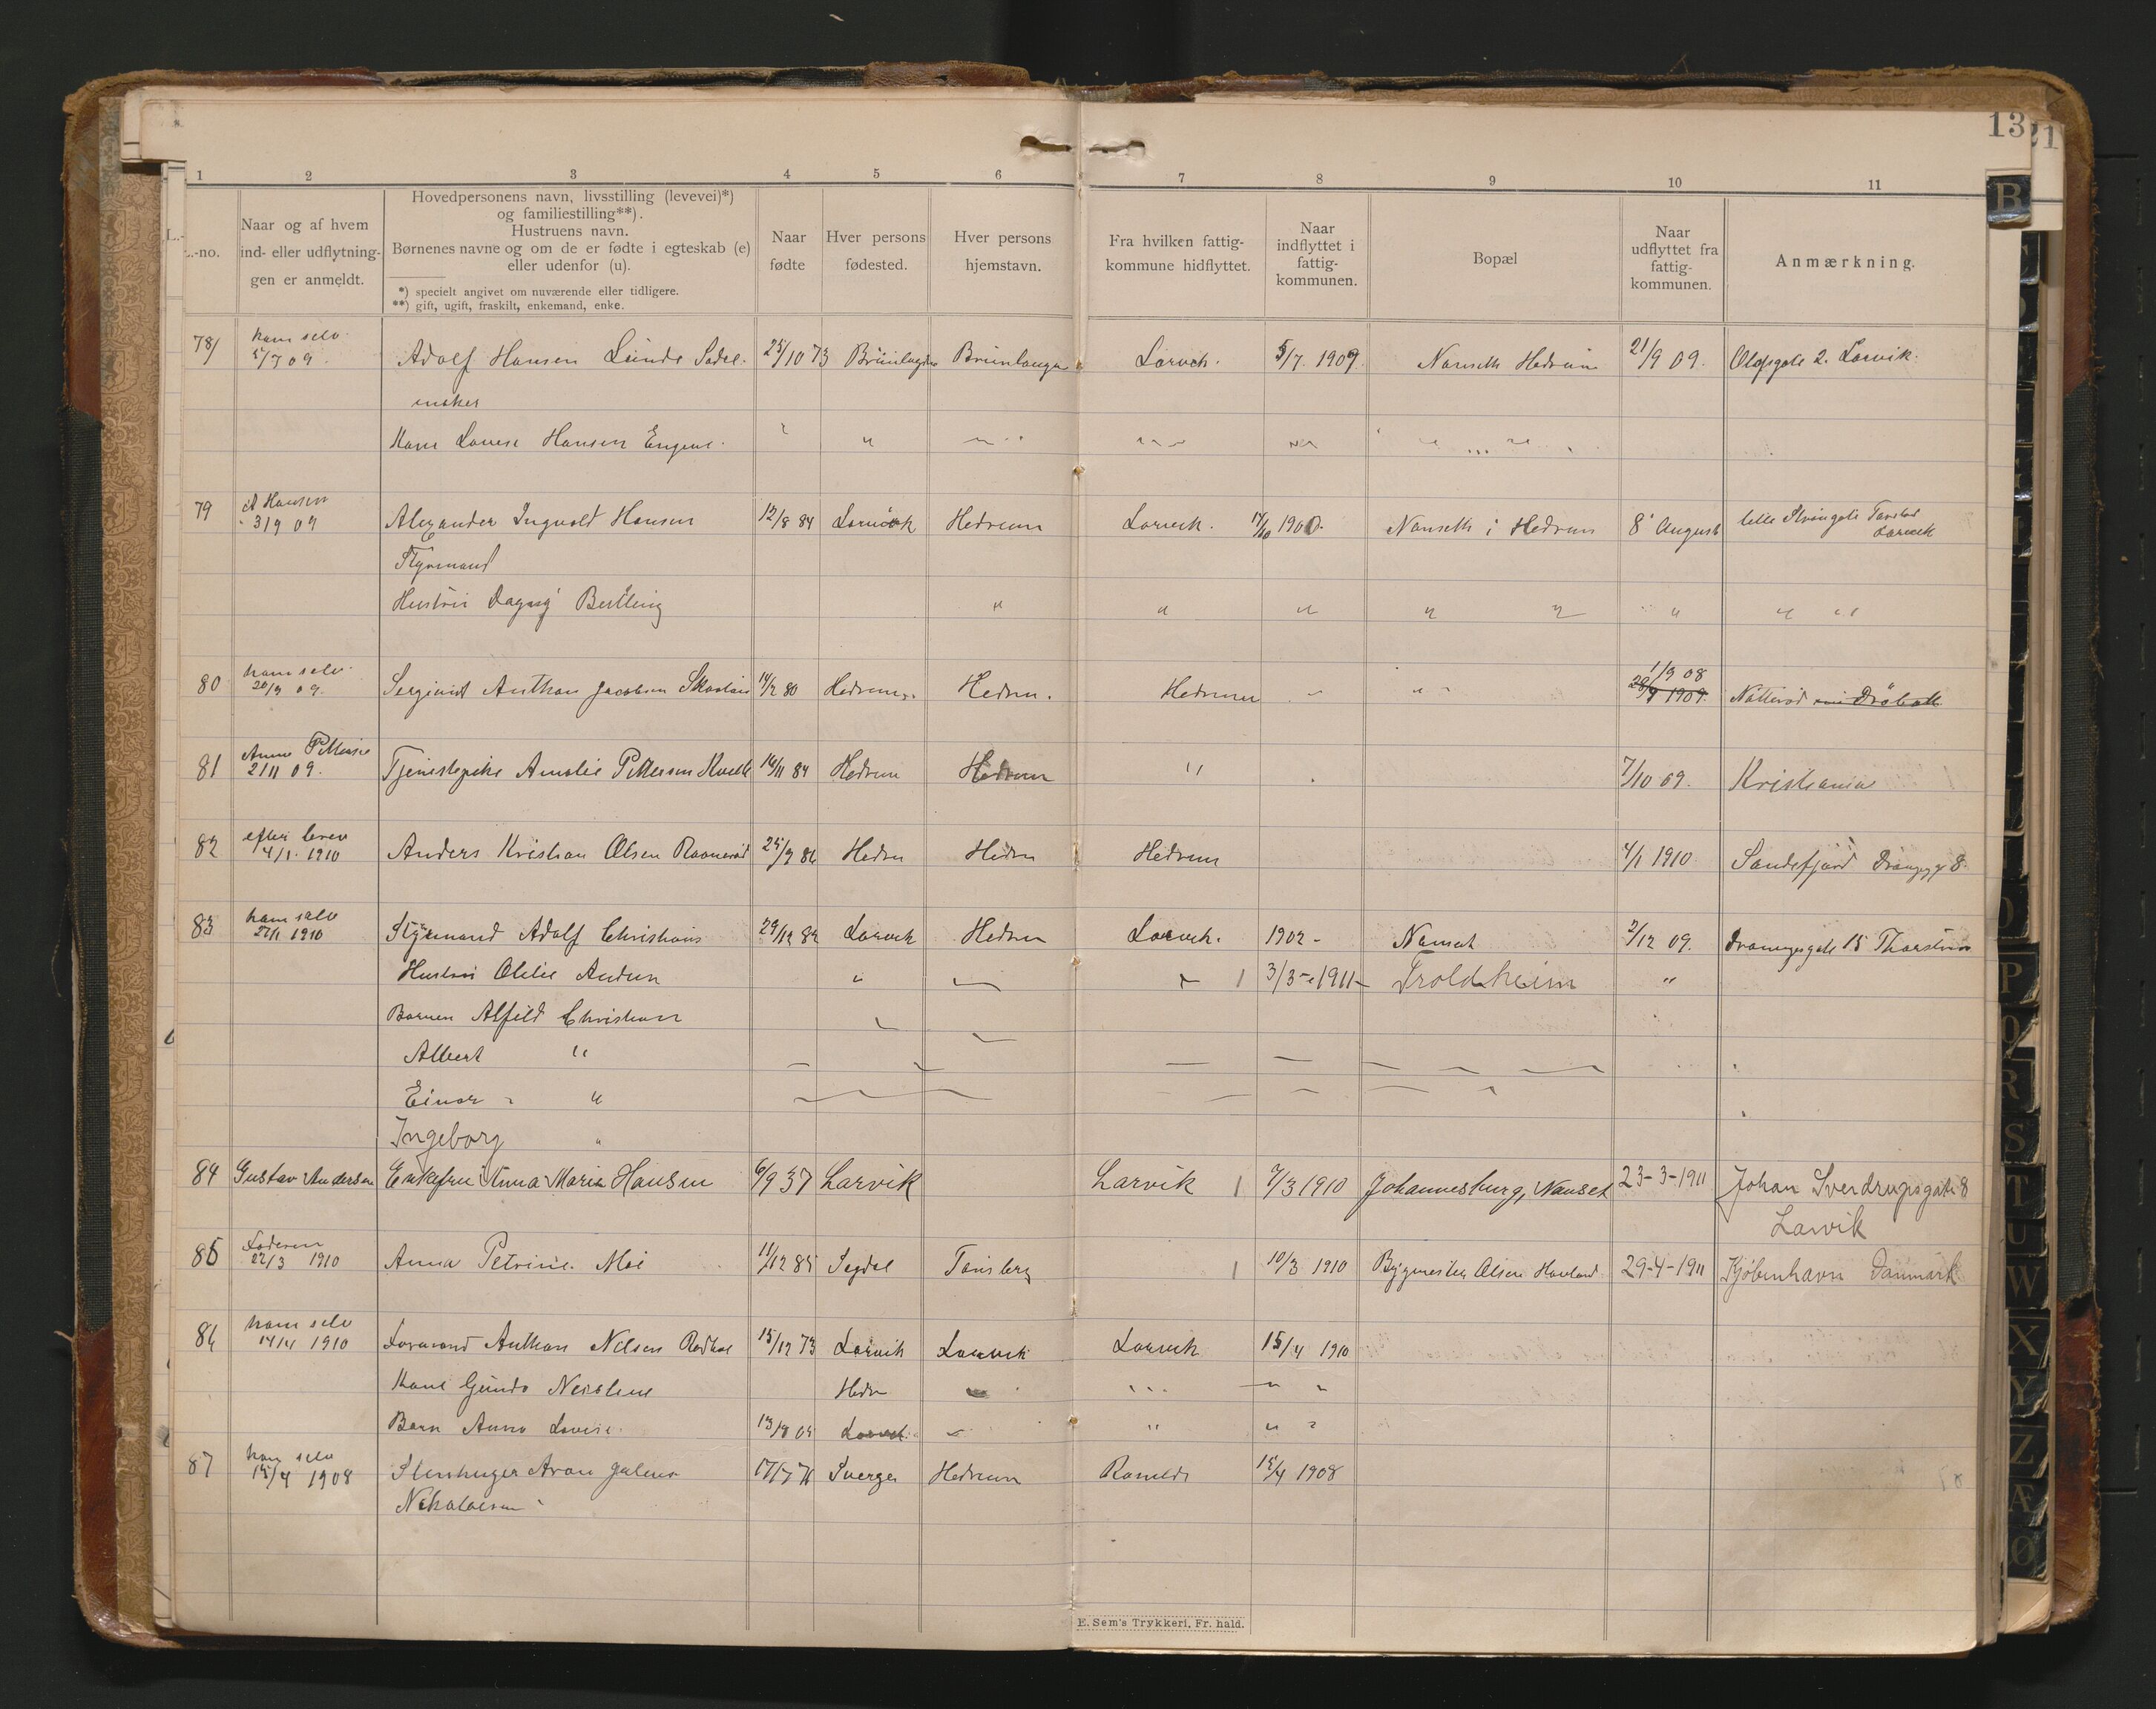 13
21
1 2 3 4 5 6 7 8 9 10 11
L.-no.
Naar og af hvem
ind- eller udflytnin-
gen er anmeldt.
Hovedpersonens navn, livsstilling (levevei)*)
og familiestilling**).
Hustruens navn.
Børnenes navne og om de er fødte i egteskab (e)
eller udenfor (u).
*) specielt angivet om nuværende eller tidligere.
**) gift, ugift, fraskilt, enkemand, enke.
Naar
fødte
Hver persons
fødested.
Hver persons
hjemstavn.
Fra hvilken fattig-
kommune hidflyttet.
Naar
indflyttet i
fattig-
kommunen.
Bopæl
Naar
udflyttet fra
fattig-
kommunen.
Anmærkning.
ham selv
78 5/7 09 Adolf Hansen Lunde Sadel- 25/10 73 Brunlagnes Brunlangn Larvik. 5/7 1909. Nanseth Hedrum 21/9 09. Olafsgate 2. Larvik.
maker
Kone Lovise Hansen Engene "
A Hansen
79 3/9 09 Alexander Ingvald Hansen 12/8 84 Larvik Hedrum Larvik. 14/10 1900. Nanseth i Hedrum 8 August lille Strangate Torstrand Larvik
Styrmand
Hustru Dagny Bertling " " " " " " "
ham selv
80 20/9 09. Sergiant Anthon Jacobsen 14/2 80 Hedrum Hedrum. Hedrum " 1/9 08 20/9 1909. Nøtterø
Anna Pettersen
81 2/11 09. Tjenestepike Amalie Pettersen Kvelle 16/11 84 Hedrum Hedrum " 7/10 09. Kristiania
efter brev
82 4/1 1910 Anders Kristian Olsen 25/9 86 Hedrum Hedrum Hedrum 4/1 1910 Sandefjord
ham selv
83 27/1 1910 Styrmand Adolf Christians 29/12 82 Larvik Hedrum Larvik. 1902 - Nanset 2/12 09. Dronningsgate 15 Thorstrand
Hustru Olelie Andersen " 1 3/3 - 1911 - Troldheim "
Barnen Alfild Christian
Albert "
Einar "
Ingeborg "
84 Gustav Andersen Enkefru Anna Maria Hansen 6/9 37 Larvik Larvik 1 7/3 1910 Johannesburg, Nanset 23-3-1911 Johan Sverdrupsgate 8
Larvik
85 22/3 1910 Anna Petrine Moe 11/12 85 Sigdal Tønsberg 1 10/3 1910 Bygmester Olsen 29-4-1911 Kjøbenhavn Danmark
ham selv
86 14/4 1910 Anthon Nilsen 15/12 73 Larvik Larvik Larvik 15/4 1910
Kone Gunda Hedr "
Barn Anna Lovise 13/8 05 Larvik " "
ham selv
87 15/4 1908 Stenhuger Aron Julius 17/7 76 Sverge Hedrum Ramnes 15/4 1908
Nikolaisen
E. Sem's Trykkeri, Fr. hald.
B
O
P
Q
R
S
T
U
W
X
Y
Z
Æ
Ø